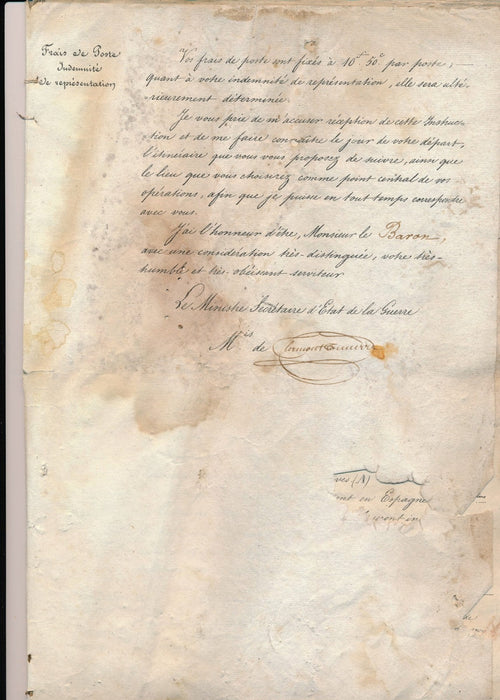 Frais de Poste
Indemnité
de représentation
Vos frais de poste ont fixés à 10f 50c par poste;
quant à votre indemnité de représentation, elle sera ulté-
rieurement déterminée.
Je vous prie de m'accuser réception de cette Instruc-
tion et de me faire connaître le jour de votre départ,
l'itinéraire que vous vous proposez de suivre, ainsi que
le lieu que vous choisirez comme point central de vos
opérations, afin que je puisse en tout temps correspondre
avec vous.
J'ai l'honneur d'être, Monsieur le Baron,
avec une considération très-distinguée, votre très-
humble et très-obéissant serviteur
Le Ministre Secrétaire d'Etat de la Guerre
Mis de Clermont Tonnerre
ves (A)
ent en Espagne
ront in
de